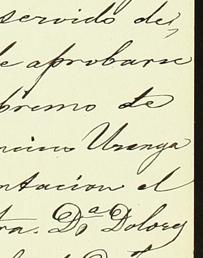 servido de
de aprobarse
premo de
ncisco Uranga
ntacion el
tra. D.ª Dolores